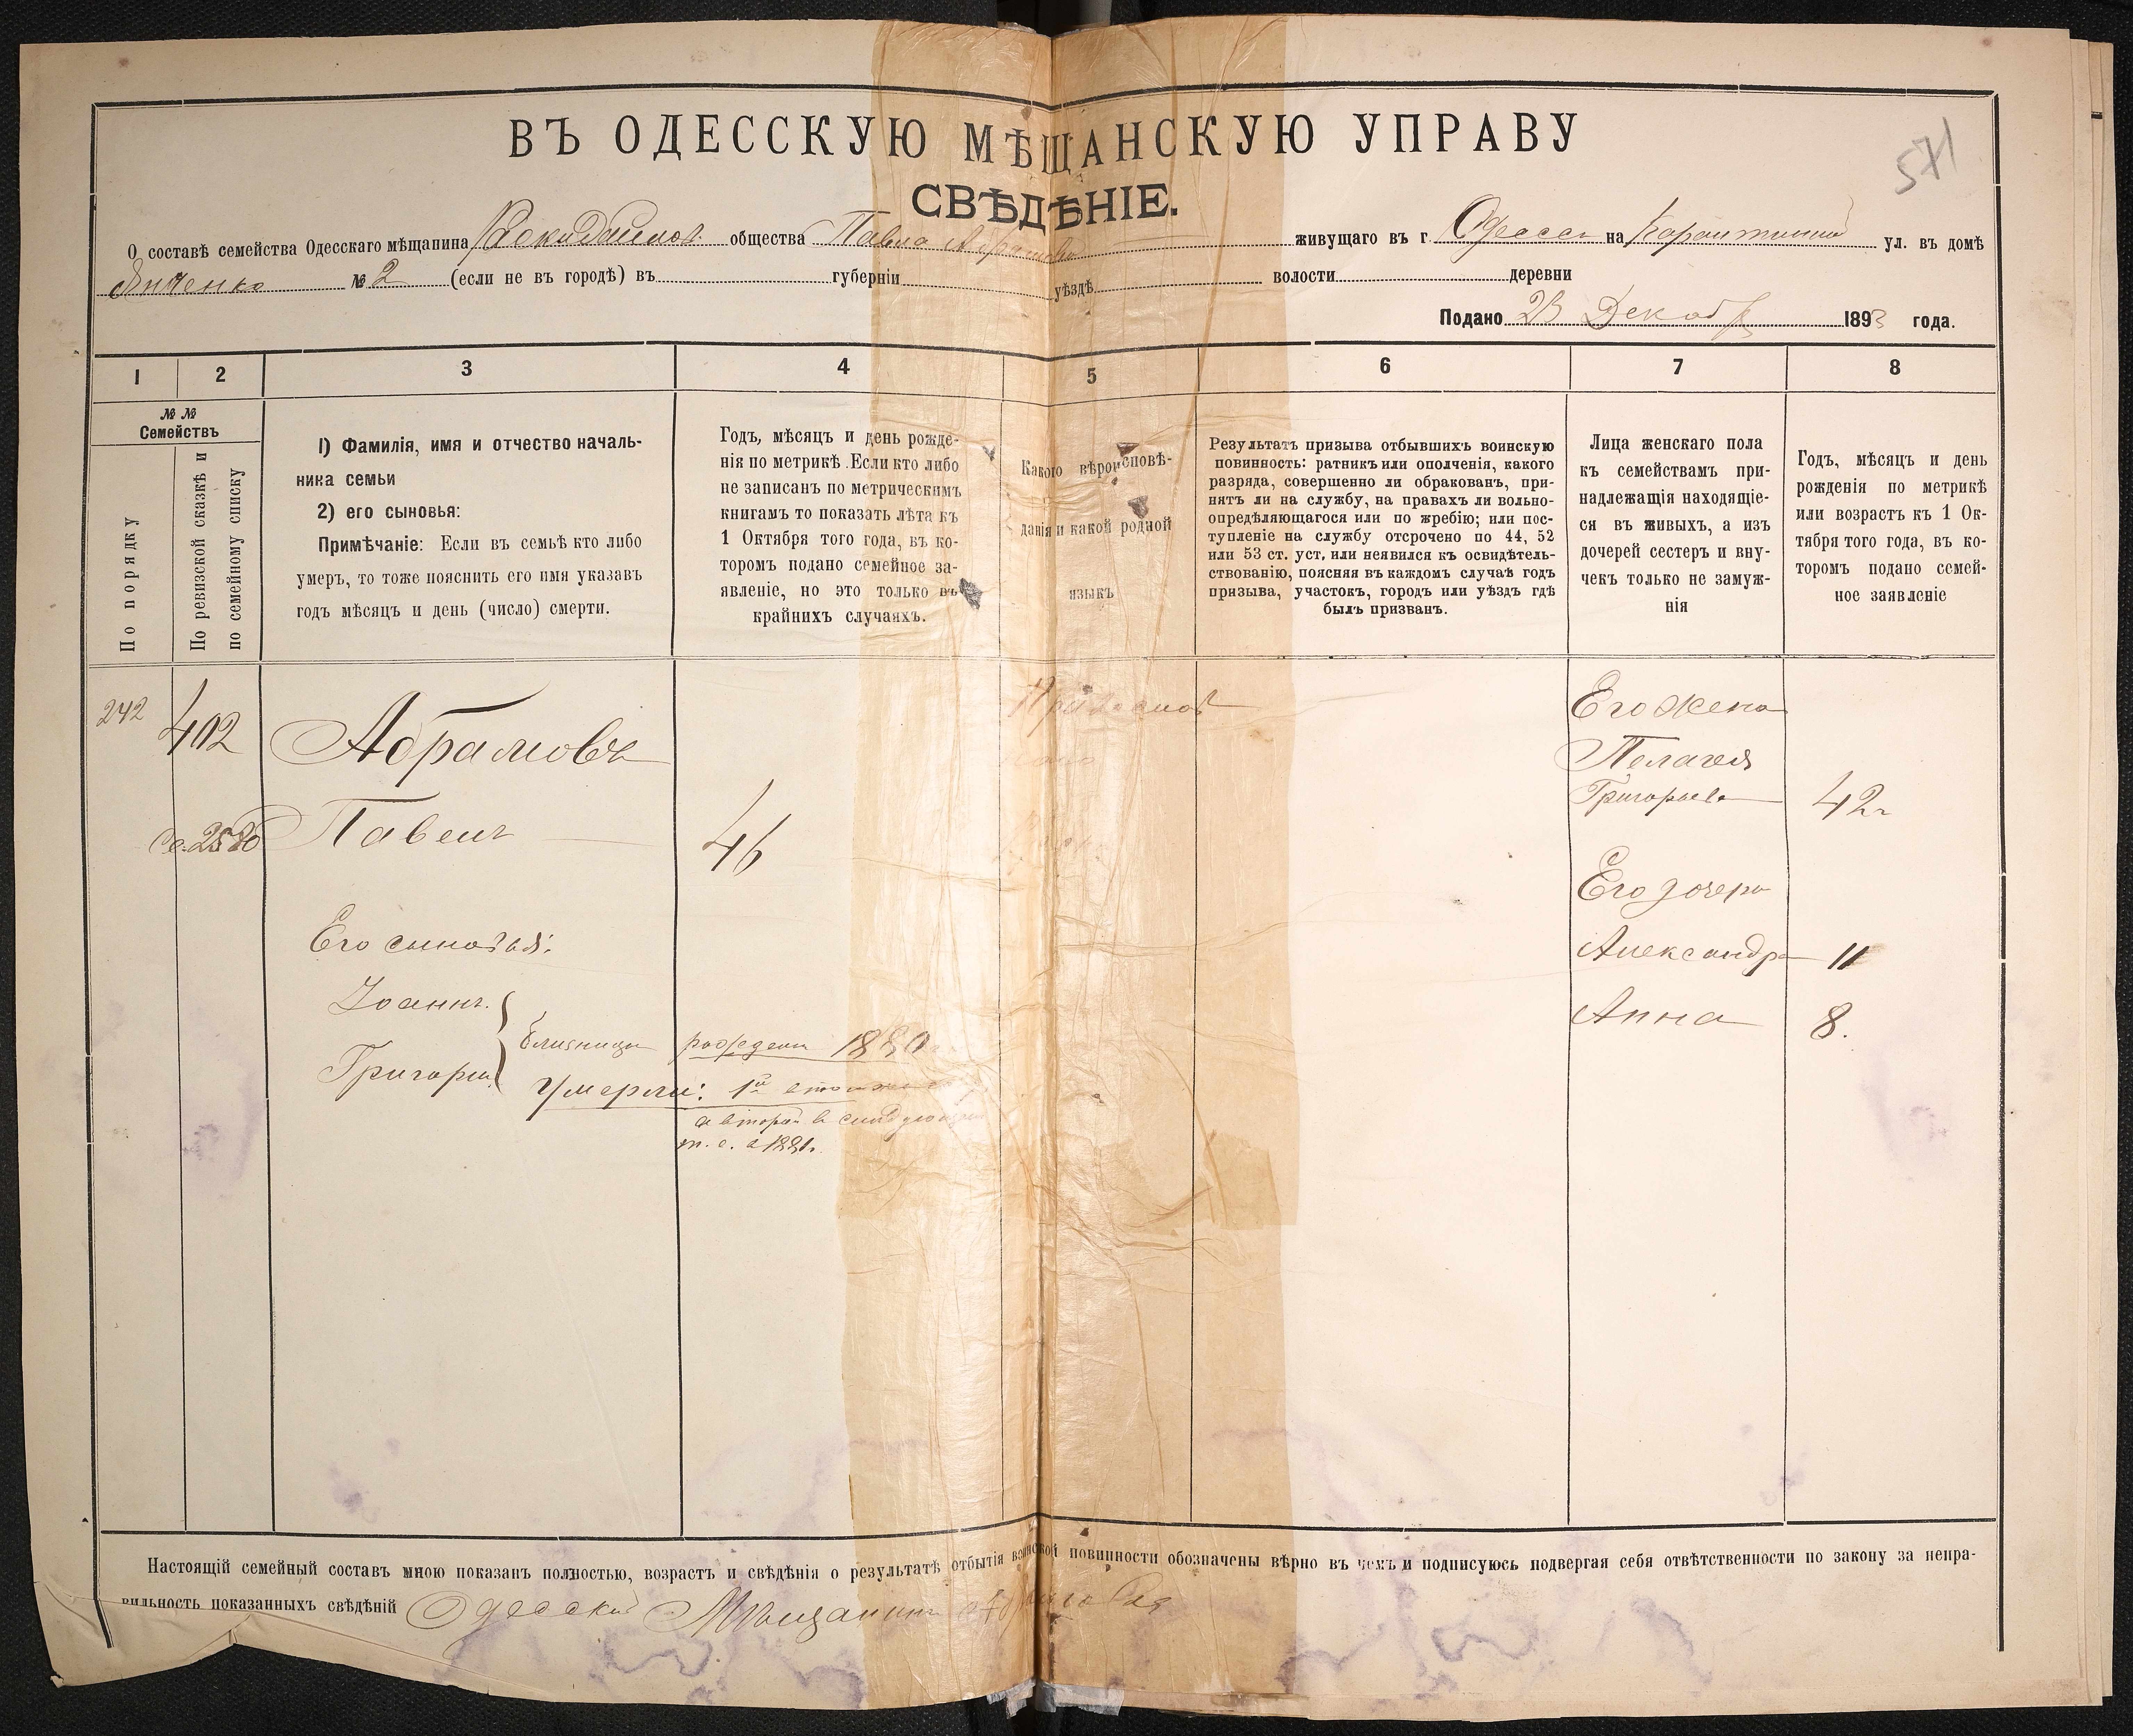 571
ВЪ ОДЕССКУЮ МѢЩАНСКУЮ УПРАВУ
СВѢДѢНІЕ.
О составѣ семейства Одесскаго мѣщанина общества Павла Абрамова живущаго въ г. Одессѣ на Карантинной ул. въ домѣ
Янченко № 2 (если не въ городѣ) въ губерніи уѣздѣ волости деревни
Подано 23 Декабр 1893 года.
1 2 3 4 5 6 7 8
№ № Семействъ
По порядку
По ревизской сказкѣ и по семейному списку
1) Фамилія, имя и отчество началь-
ника семьи
2) его сыновья:
Примѣчаніе: Если въ семьѣ кто либо
умеръ, то тоже пояснить его имя указавъ
годъ мѣсяцъ и день (число) смерти.
Годъ, мѣсяцъ и день рожде-
нія по метрикѣ. Если кто либо
не записанъ по метрическимъ
книгамъ то показать лѣта къ
1 Октября того года, въ ко-
торомъ подано семейное за-
явленіе, но это только въ
крайнихъ случаяхъ.
Какого вѣроисповѣ-
данія и какой родной
языкъ
Результатъ призыва отбывшихъ воинскую
повинность: ратникъ или ополченія, какого
разряда, совершенно ли обракованъ, при-
нятъ ли на службу, на правахъ ли вольно-
опредѣляющагося или по жребію; или пос-
тупленіе на службу отсрочено по 44, 52
или 53 ст. уст. или неявился къ освидѣтель-
ствованію, поясняя въ каждомъ случаѣ годъ
призыва, участокъ, городъ или уѣздъ гдѣ
былъ призванъ.
Лица женскаго пола
къ семействамъ при-
надлежащія находящіе-
ся въ живыхъ, а изъ
дочерей сестеръ и вну-
чекъ только не замуж-
нія
Годъ, мѣсяцъ и день
рожденія по метрикѣ
или возрастъ къ 1 Ок-
тября того года, въ ко-
торомъ подано семей-
ное заявленіе
242 402 Абрамовъ Православ Его жена
Пелагея
Григорьева 42 г
се. 2580 Павелъ 46
Его дочери
Его сыновья:
Александра 11
Іоаннъ.
Анна 8.
Григорій близнецы рождены 1880
Умерли: 1й
а второй в следующем
т. е. в 1881 г.
Настоящій семейный составъ мною показанъ полностью, возрастъ и свѣдѣнія о результатѣ отбытія воинской повинности обозначены вѣрно въ чемъ и подписуюсь подвергая себя отвѣтственности по закону за непра-
вильность показанныхъ свѣдѣній Одесский Мѣщанинъ